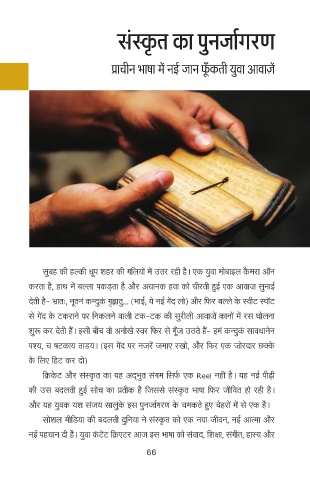 संस्कृत का पुनर्जागरण
प्राचीन भाषा में नई जान फूँकती युवा आवाज़ें
सुबह की हल्की धूप शहर की गलियों में उतर रही है। एक युवा मोबाइल कैमरा ऑन
करता है, हाथ में बल्ला पकड़ता है और अचानक हवा को चीरती हुई एक आवाज़ सुनाई
देती है– भ्रातः, नूतनं कन्दुकं गृह्णातु... (भाई, ये नई गेंद लो) और फिर बल्ले के स्वीट स्पॉट
से गेंद के टकराने पर निकलने वाली टक–टक की सुरीली आवाजें कानों में रस घोलना
शुरू कर देती हैं। इसी बीच वो अनोखे स्वर फिर से गूँज उठते हैं– इमं कन्दुकं सावधानेन
पश्य, च षटकाय ताडय। (इस गेंद पर नजरें जमाए रखो, और फिर एक जोरदार छक्के
के लिए हिट कर दो)
क्रिकेट और संस्कृत का यह अद्भुत संगम सिर्फ एक Reel नहीं है। यह नई पीढ़ी
की उस बदलती हुई सोच का प्रतीक है जिससे संस्कृत भाषा फिर जीवित हो रही है।
और यह युवक यश संजय सालुंके इस पुनर्जागरण के चमकते हुए चेहरों में से एक है।
सोशल मीडिया की बदलती दुनिया ने संस्कृत को एक नया जीवन, नई आत्मा और
नई पहचान दी है। युवा कंटेंट क्रिएटर आज इस भाषा को संवाद, शिक्षा, संगीत, हास्य और
66